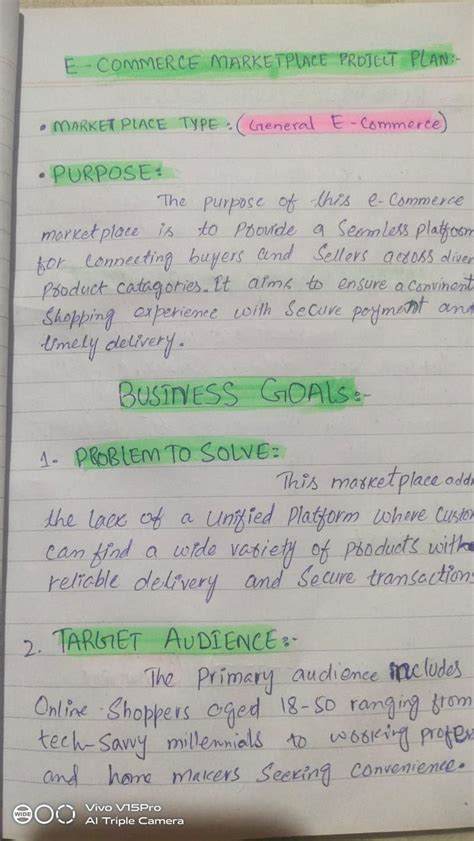 E-COMMERCE MARKETPLACE PROJECT PLAN:-
• MARKET PLACE TYPE: (General E-Commerce)
• PURPOSE:
The purpose of this e-Commerce
marketplace is to Provide a Seemless platform
for connecting buyers and Sellers across diver
Product catagories. It aims to ensure a convinent
Shopping experience with Secure payment and
timely delivery.
BUSINESS GOALS:-
1- PROBLEM TO SOLVE:
This marketplace addr
the lack of a Unified Platform where Custom
can find a wide variety of products with
reliable delivery and Secure transactions
2. TARGET AUDIENCE:-
The Primary audience includes
Online Shoppers aged 18-50 ranging from
tech-savvy millennials to working profes
and home makers Seeking Convenience.
WIDE
Vivo V15Pro
AI Triple Camera